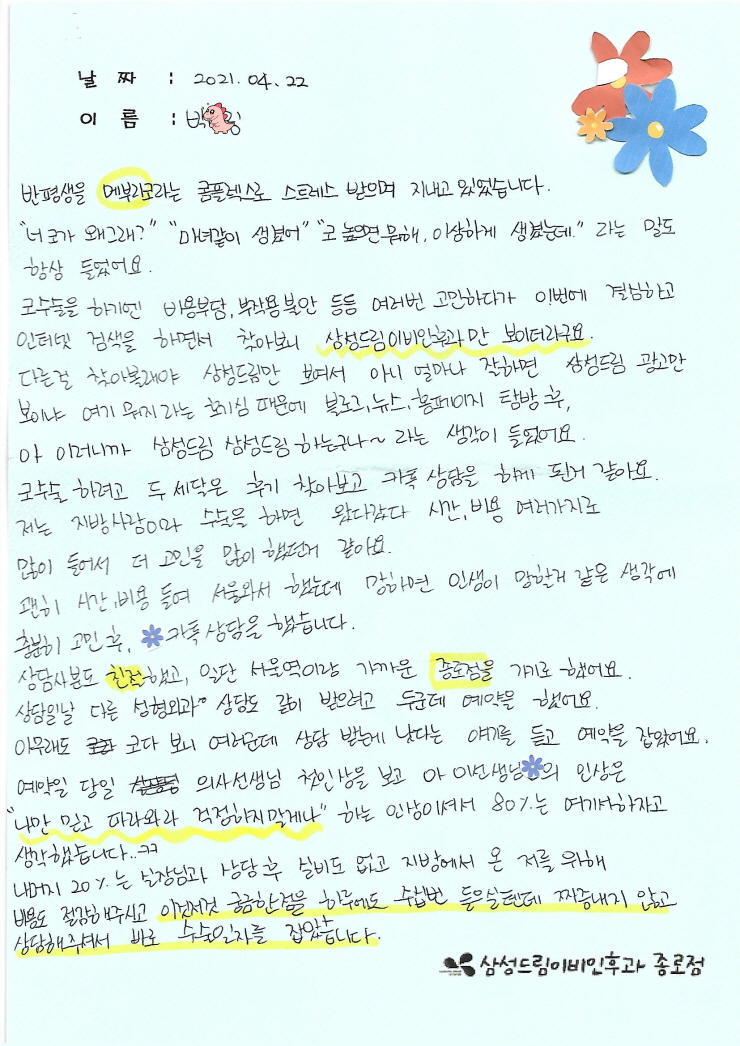 날 짜 : 2021.04.22
이 름 : 박
반평생을 메부리코라는 콤플렉스로 스트레스 받으며 지내고 있었습니다.
"너 코가 왜그래?" "마녀같이 생겼어" "코 높으면 뭐해, 이상하게 생겼는데." 라는 말도
항상 들었어요.
코수술을 하기엔 비용부담, 부작용 불안 등등 여러번 고민하다가 이번에 결심하고
인터넷 검색을 하면서 찾아보니 삼성드림이비인후과만 보이더라구요.
다른걸 찾아볼래야 삼성드림만 보여서 아니 얼마나 잘하면 삼성드림 광고만
보이냐 여기 뭐지 라는 호기심 때문에 블로그, 뉴스, 홈페이지 탐방 후,
아 이러니까 삼성드림 삼성드림 하는구나~ 라는 생각이 들었어요.
코수술 하려고 두 세달은 후기 찾아보고 카톡 상담을 하게 된거 같아요.
저는 지방사람이라 수술을 하면 왔다갔다 시간, 비용 여러가지로
많이 들어서 더 고민을 많이 했던거 같아요.
괜히 시간, 비용 들여 서울와서 했는데 망하면 인생이 망할거 같은 생각에
충분히 고민 후, 카톡 상담을 했습니다.
상담사분도 친절했고, 일단 서울역이랑 가까운 종로점을 가기로 했어요.
상담일날 다른 성형외과 상담도 같이 받으려고 두군데 예약을 했어요.
아무래도 코다 보니 여러군데 상담 받는게 낫다는 얘기를 듣고 예약을 잡았어요.
예약일 당일 의사선생님 첫인상을 보고 아 이선생님의 인상은
"나만 믿고 따라와라 걱정하지말게나" 하는 인상이셔서 80%는 여기서하자고
생각했습니다..ㅋㅋ
나머지 20%는 실장님과 상담 후 실비도 없고 지방에서 온 저를 위해
비용도 절감해주시고 이것저것 궁금한점을 하루에도 수십번 들으실텐데 짜증내지 않고
상담해주셔서 바로 수술일자를 잡았습니다.
삼성드림이비인후과 종로점